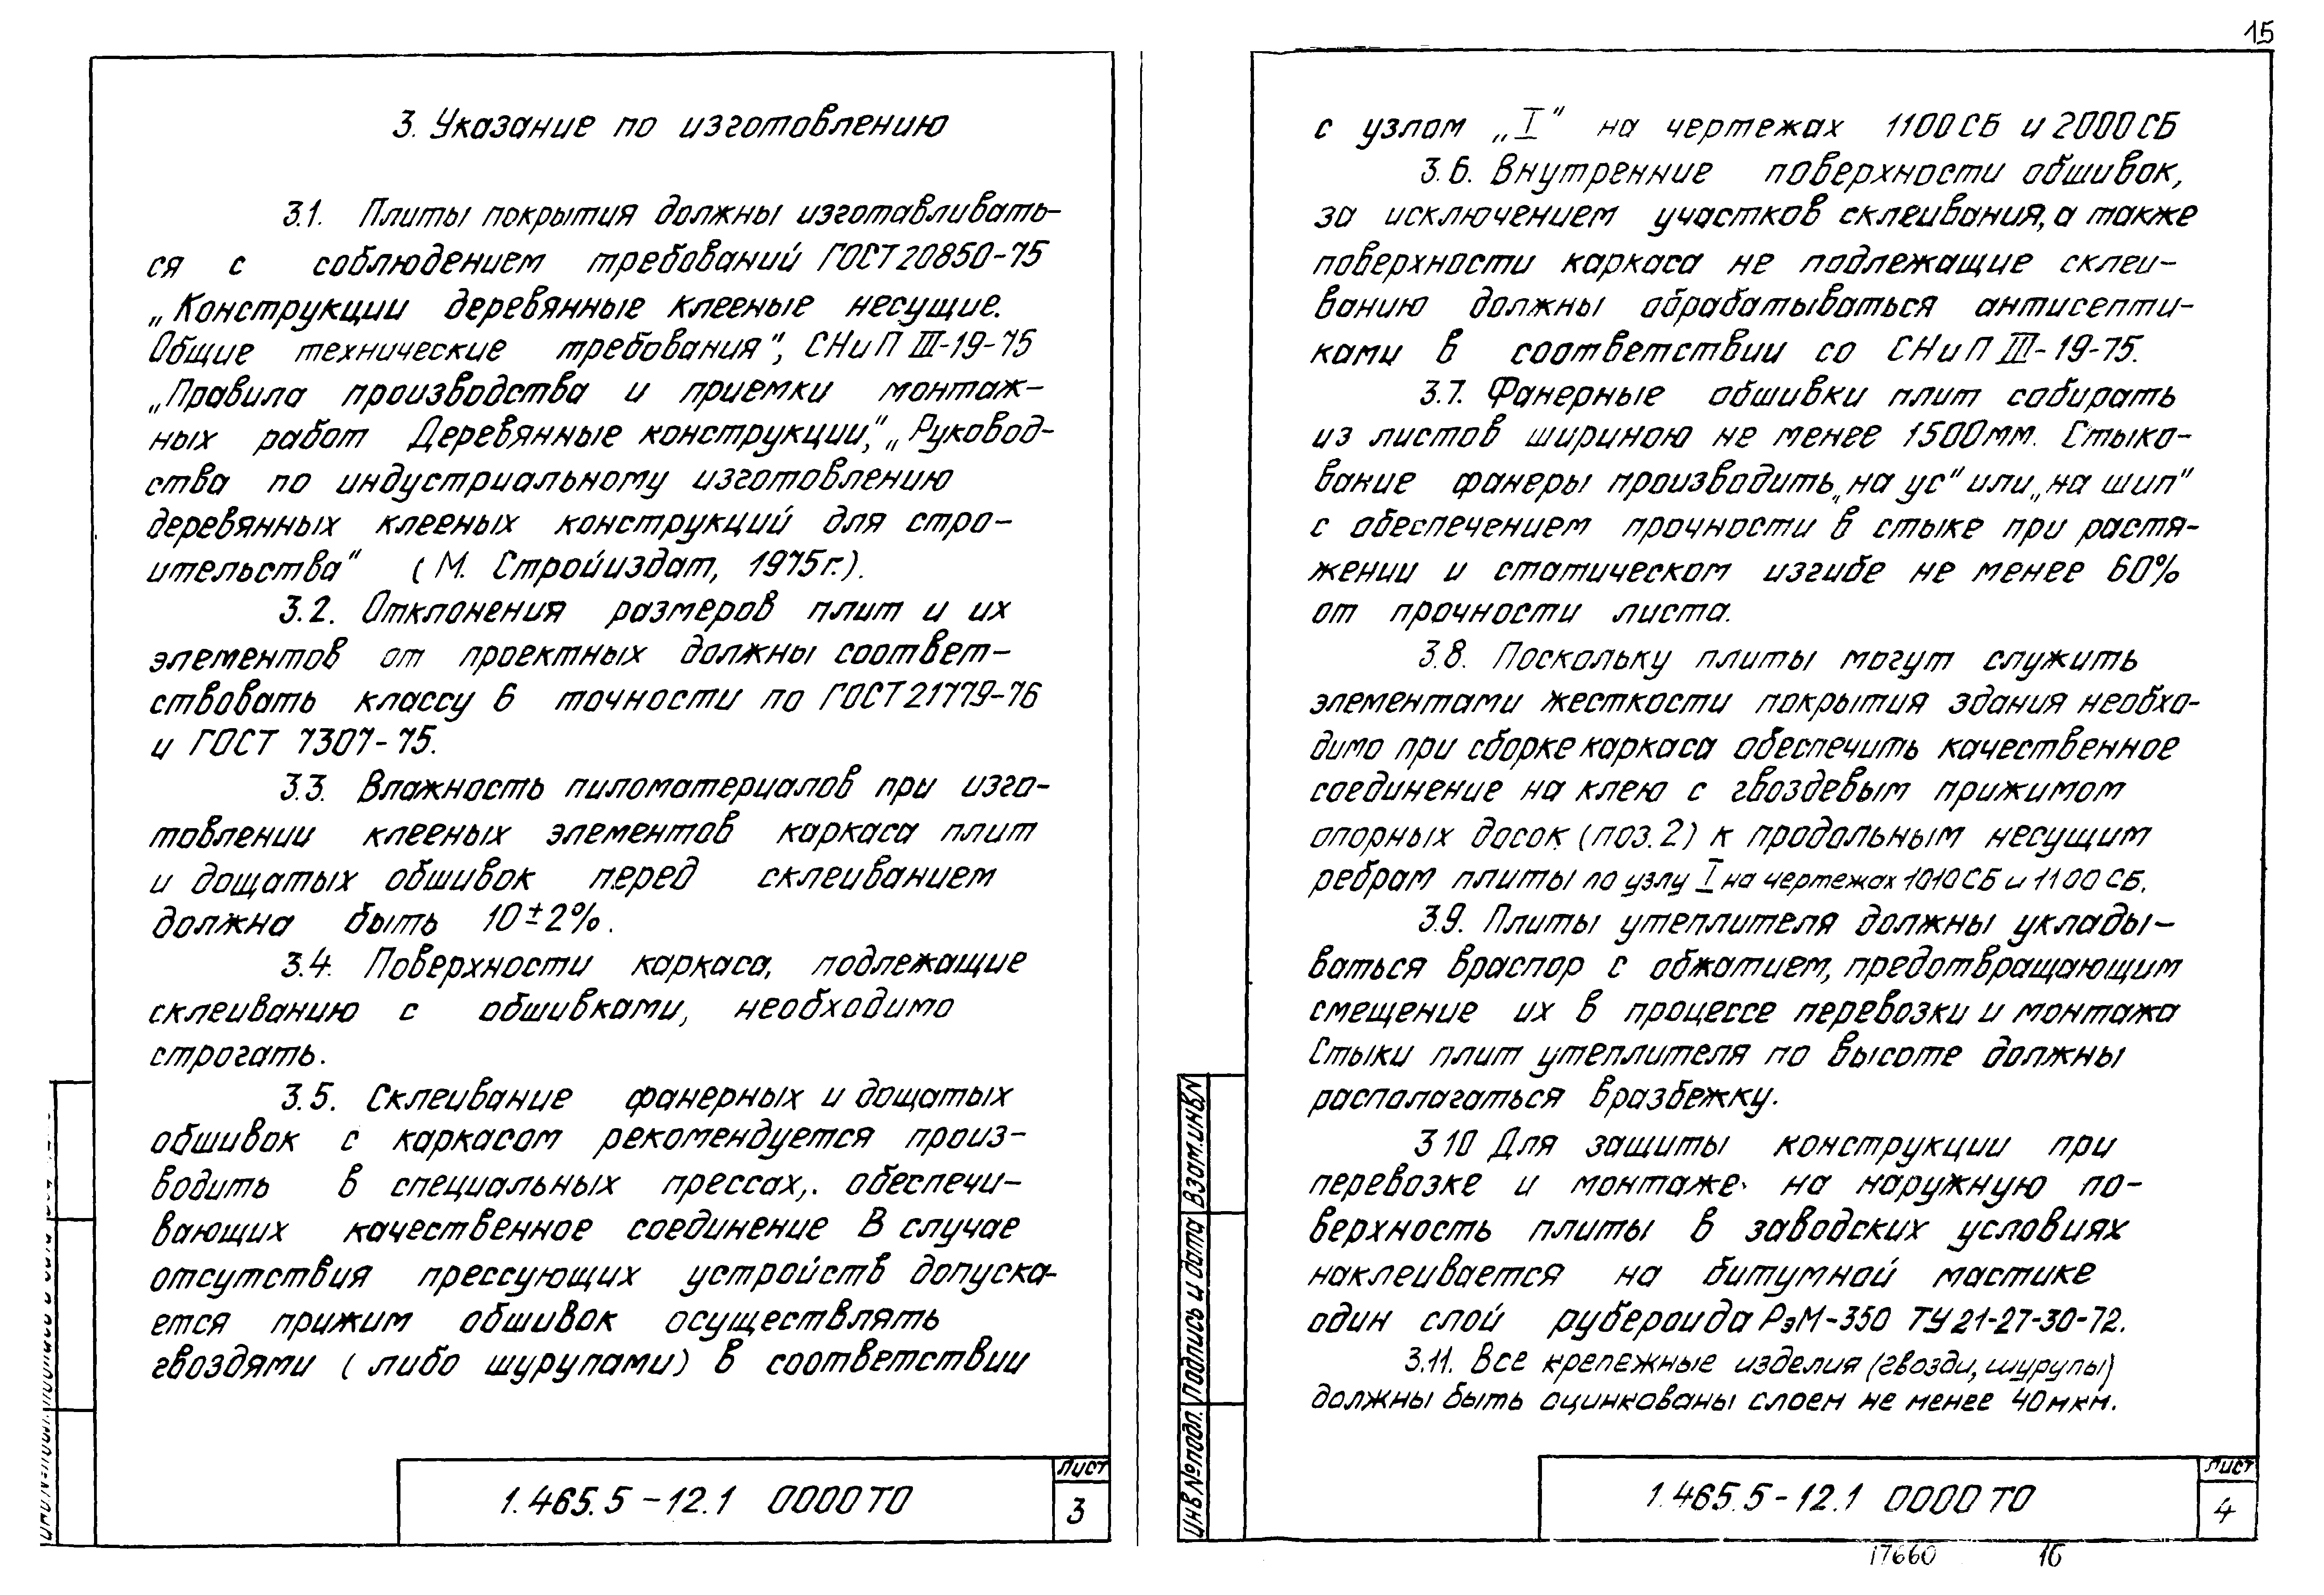 15
3. Указание по изготовлению
3.1. Плиты покрытия должны изготавливать-
ся с соблюдением требований ГОСТ 20850-75
„Конструкции деревянные клееные несущие.
Общие технические требования", СНиП III-19-75
„Правила производства и приемки монтаж-
ных работ Деревянные конструкции," „Руковод-
ства по индустриальному изготовлению
деревянных клееных конструкций для стро-
ительства" (М. Стройиздат, 1975г.).
3.2. Отклонения размеров плит и их
элементов от проектных должны соответ-
ствовать классу 6 точности по ГОСТ 21779-76
и ГОСТ 7307-75.
3.3. Влажность пиломатериалов при изго-
товлении клееных элементов каркаса плит
и дощатых обшивок перед склеиванием
должна быть 10±2%.
3.4. Поверхности каркаса, подлежащие
склеиванию с обшивками, необходимо
строгать.
3.5. Склеивание фанерных и дощатых
обшивок с каркасом рекомендуется произ-
водить в специальных прессах,. обеспечи-
вающих качественное соединение В случае
отсутствия прессующих устройств допуска-
ется прижим обшивок осуществлять
гвоздями (либо шурупами) в соответствии
1.465.5-12.1 0000ТО
Лист
3
с узлом „I" на чертежах 1100СБ и 2000СБ
3.6. Внутренние поверхности обшивок,
за исключением участков склеивания, а также
поверхности каркаса не подлежащие склеи-
ванию должны обрабатываться антисепти-
ками в соответствии со СНиП III-19-75.
3.7. Фанерные обшивки плит собирать
из листов шириною не менее 1500мм. Стыко-
вание фанеры производить „на ус" или „на шип"
с обеспечением прочности в стыке при растя-
жении и статическом изгибе не менее 60%
от прочности листа.
3.8. Поскольку плиты могут служить
элементами жесткости покрытия здания необхо-
димо при сборке каркаса обеспечить качественное
соединение на клею с гвоздевым прижимом
опорных досок (поз.2) к продольным несущим
ребрам плиты по узлу I на чертежах 1010СБ и 1100СБ.
3.9. Плиты утеплителя должны уклады-
ваться враспор с обжатием, предотвращающим
смещение их в процессе перевозки и монтажа
Стыки плит утеплителя по высоте должны
располагаться вразбежку.
3 10 Для защиты конструкции при
перевозке и монтаже на наружную по-
верхность плиты в заводских условиях
наклеивается на битумной мастике
один слой рубероида РэМ-350 ТУ 21-27-30-72.
3.11. Все крепежные изделия (гвозди, шурупы)
должны быть оцинкованы слоем не менее 40мкм.
Взам.инв№
Подпись и дата
Инв№подл.
1.465.5-12.1 0000ТО
Лист
4
17660
16